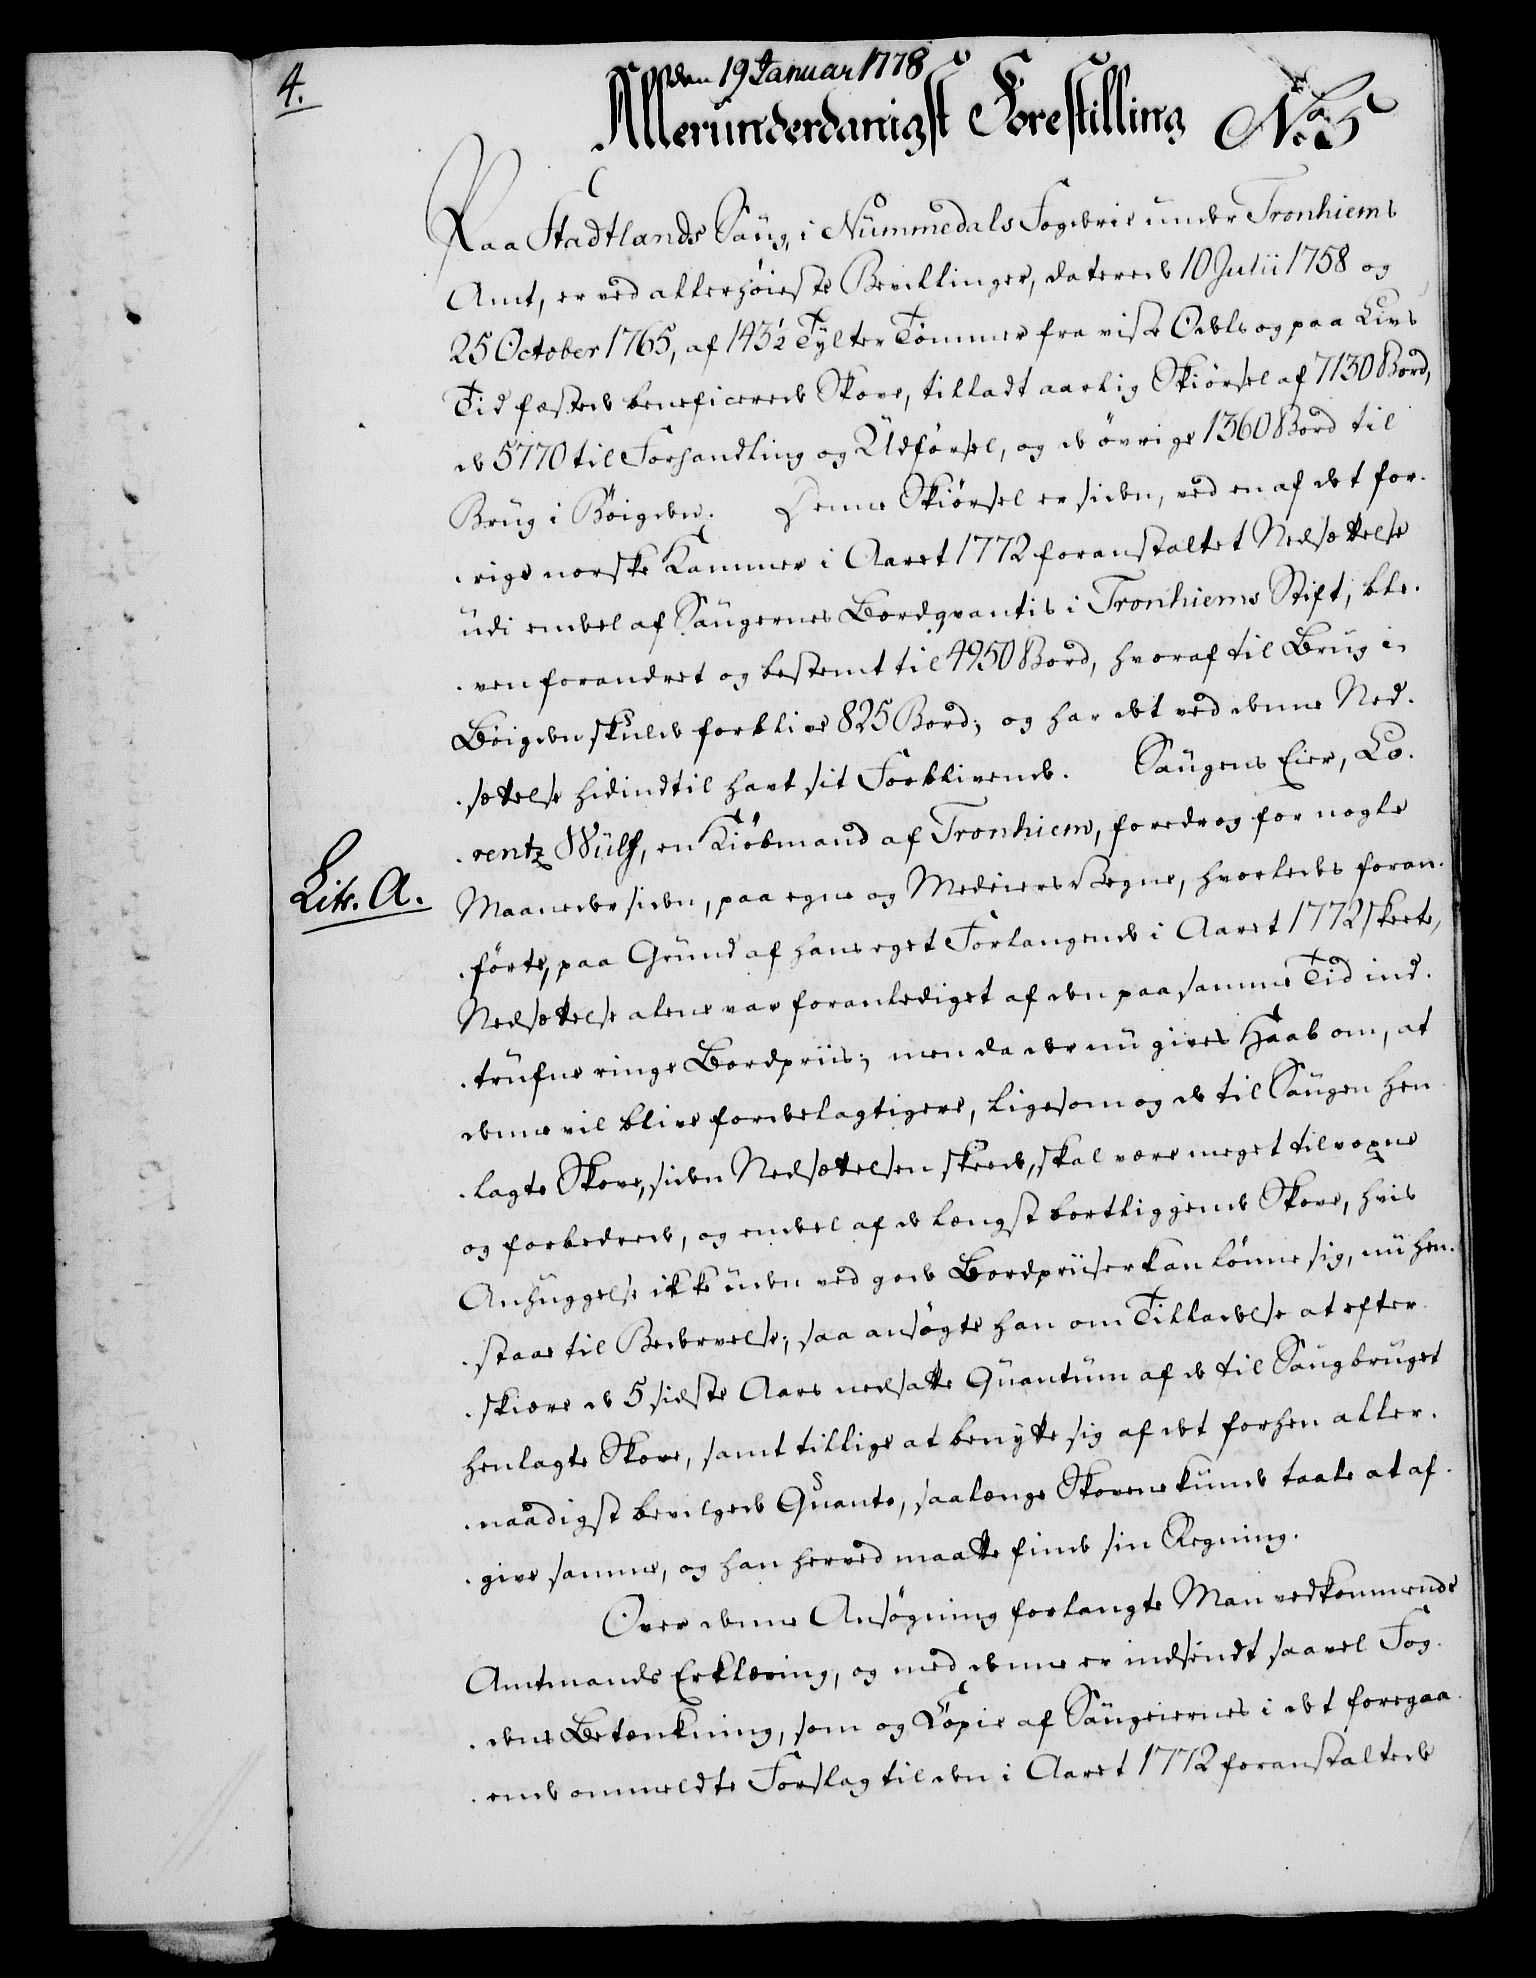 4.
den 19 Januar 1778
Allerunderdanigst Forestilling No 5
Paa Stadtlands Saug, i Nummedals Fogderie under Tronhiems
Amt, er ved allerhöieste Bevillinger, daterede 10 Julii 1758 og
25 October 1765, af 143½ Tylter Tömmer fra visse Odels og paa Livs
Tid fæstede beneficerede Skove, tilladt aarlig Skiörsel af 7130 Bord,
de 5770 til Forhandling og Udförsel, og de övrige 1360 Bord til
Brug i Böigden. Denne Skiörsel er siden, ved en af det for-
-rige norske Kammer i Aaret 1772 foranstaltet Nedsættelse
udi endeel af Saugernes Bordqvantis i Tronhiems Stift, ble-
-ven forandret og bestemt til 4950 Bord, hvoraf til Brug i
Böigden skulde forblive 825 Bord; og har det ved denne Ned-
-sættelse hidindtil havt sit Forblivende. Saugens Eier, Lo-
-rentz Wülf, en Kiöbmand af Tronhiem, foredrog for nogle
Lit. A.
Maaneder siden, paa egne og Medeieres Vegne, hvorledes foran-
-förte, paa Grund af hans eget Forlangende i Aaret 1772 skeete,
Nedsættelse alene var foranlediget af den paa samme Tid ind-
-trufne ringe Bordpriis; men da der nu gives Haab om, at
denne vil blive fordelagtigere, ligesom og de til Saugen hen-
-lagte Skove, siden Nedsættelsen skeede, skal være meget tilvoxne
og forbedrede, og endeel af de længst bortliggende Skove, hvis
Anhuggelse ikke uden ved gode Bordpriiser kan lönne sig, nu hen-
-staae til Bedervelse; saa ansögte han om Tilladelse at efter-
-skiære de 5 sidste Aars nedsatte Quantum af de til Saugbruget
henlagte Skove, samt tillige at benytte sig af det forhen aller-
-naadigst bevilgede Quanto, saalænge Skovene kunde taale at af-
-give samme, og han herved maatte finde sin Regning.
Over denne Ansögning forlangte Man vedkommende
Amtmands Erklæring, og med denne er indsendt saavel Fog-
-dens Betænkning, som og Copie af Saugeiernes i det foregaa-
-ende ommeldte Forslag til den i Aaret 1772 foranstaltede